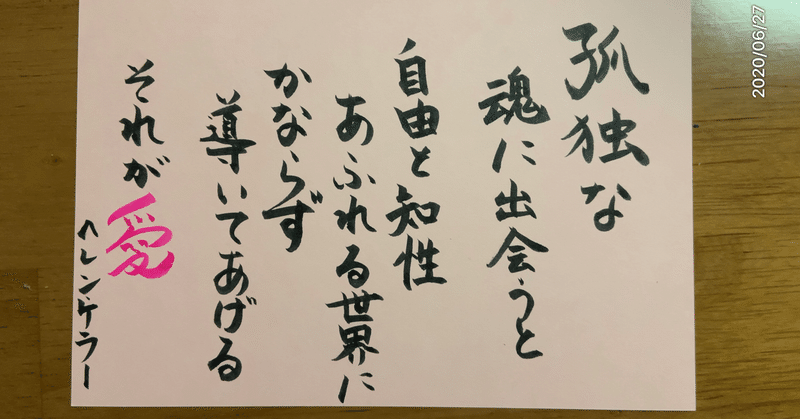 孤独な
魂に出会うと
自由と知性
あふれる世界に
かならず
導いてあげる
それが愛
ヘレンケラー
2020/06/27